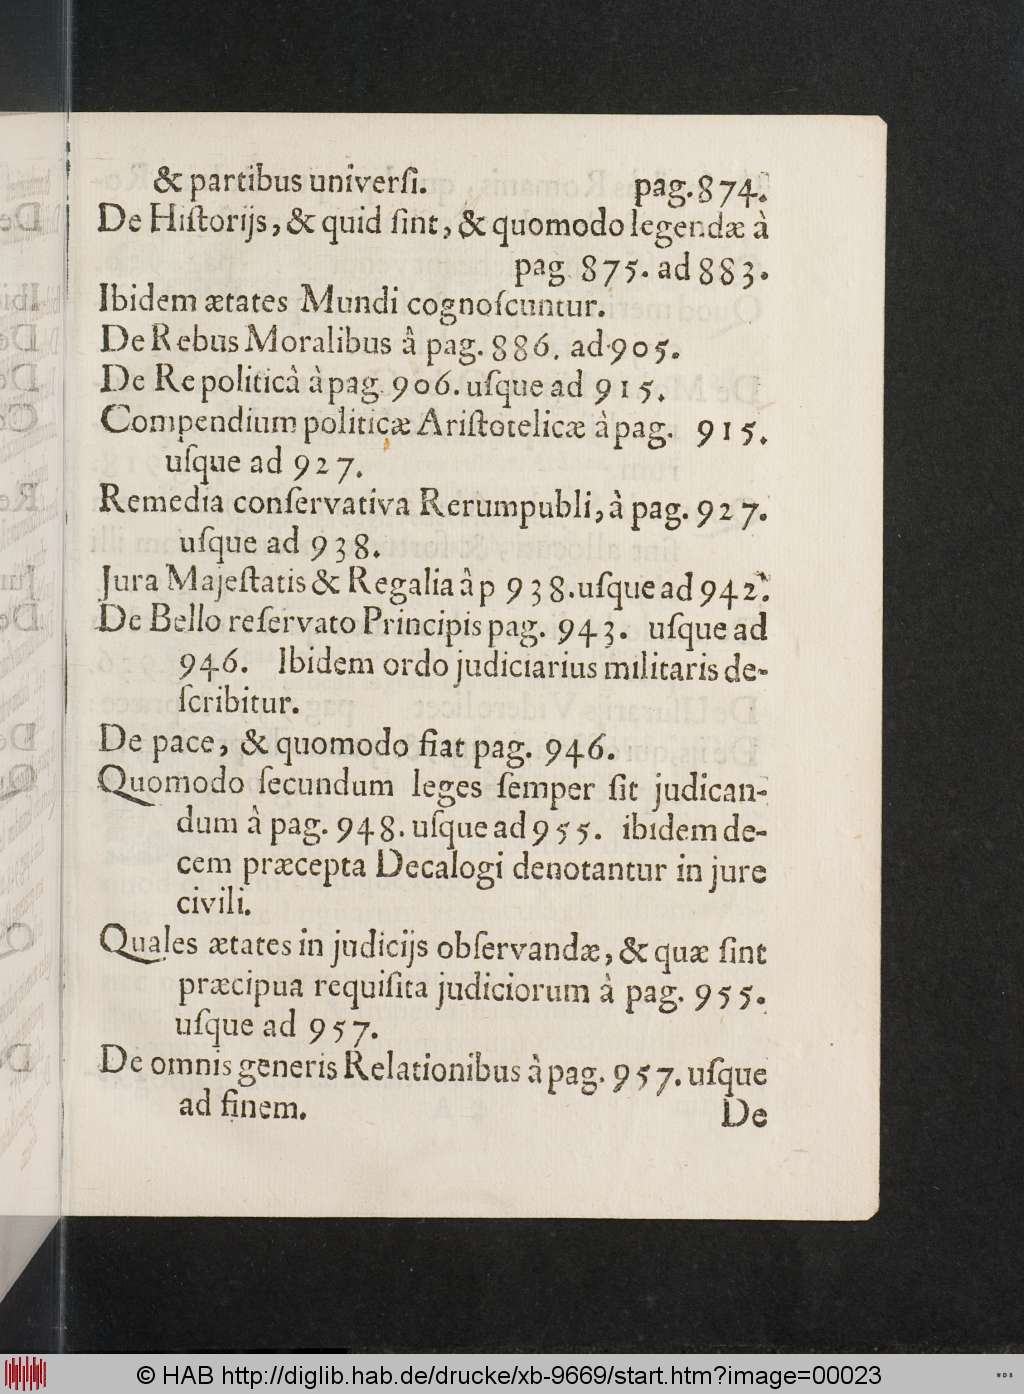 & partibus universi. pag. 874.
De Hiſtorijs, & quid ſint, & quomodo legendæ à
pag. 875. ad 883.
Ibidem ætates Mundi cognoſcuntur.
De Rebus Moralibus â pag. 886. ad 905.
De Re politicâ à pag. 906. uſque ad 915.
Compendium politicæ Ariſtotelicæ à pag. 915.
uſque ad 927.
Remedia conſervativa Rerumpubli, à pag. 927.
uſque ad 938.
Jura Majeſtatis & Regalia â p 938. uſque ad 942.
De Bello reſervato Principis pag. 943. uſque ad
946. Ibidem ordo judiciarius militaris de-
ſcribitur.
De pace, & quomodo fiat pag. 946.
Quomodo ſecundum leges ſemper ſit judican-
dum à pag. 948. uſque ad 955. ibidem de-
cem præcepta Decalogi denotantur in jure
civili.
Quales ætates in judicijs obſervandæ, & quæ ſint
præcipua requiſita judiciorum à pag. 955.
uſque ad 957.
De omnis generis Relationibus à pag. 957. uſque
ad finem.
De
© HAB http://diglib.hab.de/drucke/xb-9669/start.htm?image=00023